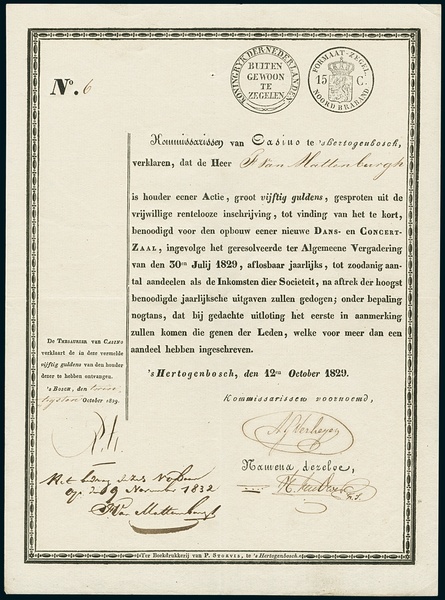 KONINGRYK DER NEDERLANDEN
BUITEN
GEWOON
TE
ZEGELEN
FORMAAT-ZEGEL
15 C.
NOORD BRABAND
No. 6
Kommissarissen van Casino te 'sHertogenbosch,
verklaren, dat de Heer F Van Mattenburgh
is houder eener Actie, groot vijftig guldens, gesproten uit de
vrijwillige rentelooze inschrijving, tot vinding van het te kort,
benoodigd voor den opbouw eener nieuwe DANS- en CONCERT-
ZAAL, ingevolge het geresolveerde ter Algemeene Vergadering
van den 30en Julij 1829, aflosbaar jaarlijks, tot zoodanig aan-
tal aandeelen als de Inkomsten dier Societeit, na aftrek der hoogst
benoodigde jaarlijksche uitgaven zullen gedogen; onder bepaling
nogtans, dat bij gedachte uitloting het eerste in aanmerking
zullen komen die genen der Leden, welke voor meer dan een
aandeel hebben ingeschreven.
's Hertogenbosch, den 12en October 1829.
Kommissarissen voornoemd,
Namens dezelve,
DE THESAURIER VAN CASINO
verklaart de in deze vermelde
vijftig guldens van den houder
dezer te hebben ontvangen.
's BOSCH, den
October 1829.
9 November 1832
Van Mattenburgh
Ter Boekdrukkerij van P. STOKVIS, te 's Hertogenbosch.